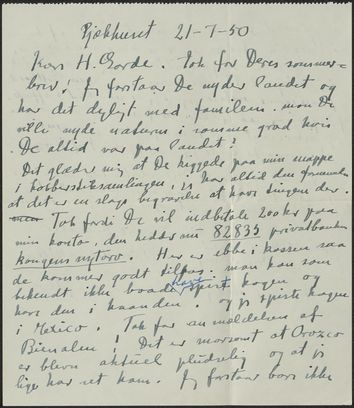 Pjækhuset 21-7-50
Kære H. Gorde. Tak for Deres sommer=
brev! Jeg forstaar De nyder landet og
har det dejligt med familien. mon De
vilde nyde naturen i samme grad hvis
De altid var paa landet?
Det glæder mig at De kiggede paa min mappe
i kobberstiksamlingen, jeg har altid den fornemmelse
at det er en slags begravelse at have tingene der.
Tak fordi De vil indbetale 200 kr paa
min konto, den hedder nu 82835 privatbanken
kongens nytorv. Her er ebbe i kassen saa
de kommer godt tilpas. man kan som
bekendt ikke baade have spist kagen og
have den i haanden, og jeg spiste kagen
i Mexico. Tak for anmeldelsen af
Bienalen! Det er morsomt at Orozco
er bleven aktuel pludselig og at jeg
lige har set ham. Jeg forstaar bare ikke